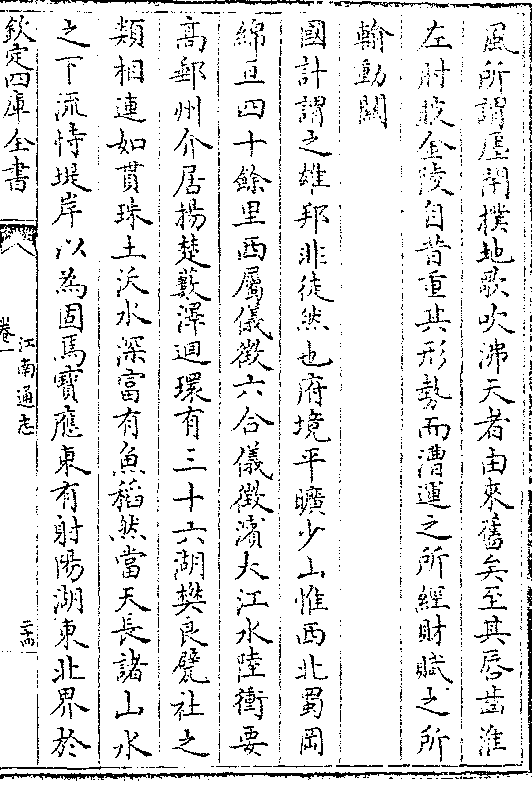 風所謂廛閈撲地歌吹沸天者由來舊矣至其唇齒淮
左肘腋金陵自昔重其形勢而漕運之所經財賦之所
輸動關
國計謂之雄邦非徒然也府境平曠少山惟西北蜀岡
綿亘四十餘里西屬儀徵六合儀徵濱大江水陸衝要
高郵州介居揚楚藪澤迴環有三十六湖樊良甓社之
類相連如貫珠土沃水深富有魚稻然當天長諸山水
之下流恃堤岸以為固焉寶應東有射陽湖東北界於
欽定四庫全書
卷一
江南通志
二十四